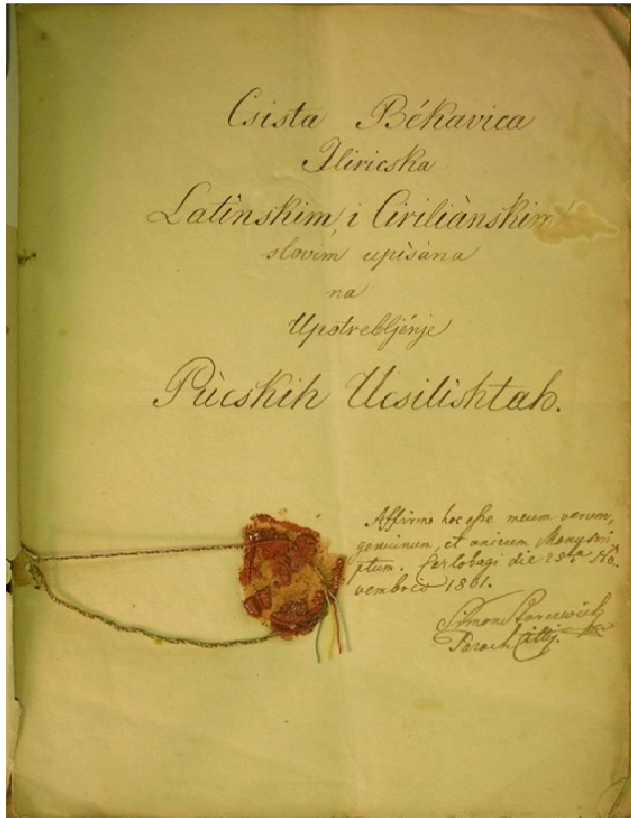 Csista Békavica
Iliricska
Latìnskim, i Ciriliànskim
slovim upisána
na
Upotrebljénje
Pùcskih Ucsilishtah.
Affirmo hoc esse meum verum,
genuinum, et unicum Manuscri-
ptum. die 25ta No-
vembris 1801.
Simon Starcsevich
Paroch